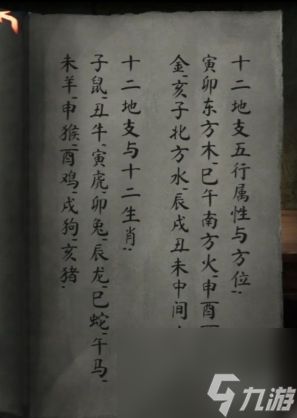 十二地支五行属性与方位：
寅卯东方木，巳午南方火，申酉
金，亥子北方水，辰戌丑未中间
十二地支与十二生肖：
子鼠，丑牛，寅虎，卯兔，辰龙，巳蛇，午马，
未羊，申猴，酉鸡，戌狗，亥猪，
九游